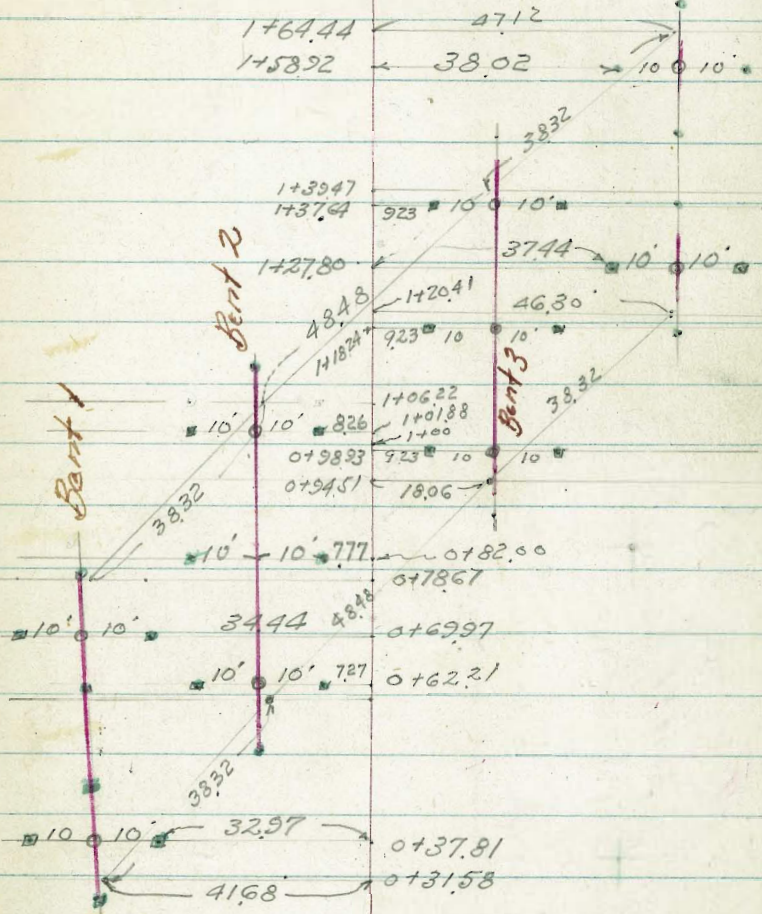 1+64.44 47.12
1+58.92 38.02 10 10'
38.32
1+39.47
1+37.64 9.23 10 10'
37.44 10' 10'
Bent 2 1+27.80
1+20.41
48.48 46.30
1+18.24 9.23 10 10'
Bent 3 38.32
Bent 1
1+06.22
10' 10' 8.26 1+01.88
1+00
0+98.93 9.23 10 10
0+94.51 18.06
38.32
10' 10' 7.77 0+82.00
0+78.67
48.48
10' 10' 34.44 0+69.97
10' 10' 7.27 0+62.21
38.32
10 10' 32.97 0+37.81
41.68 0+31.58